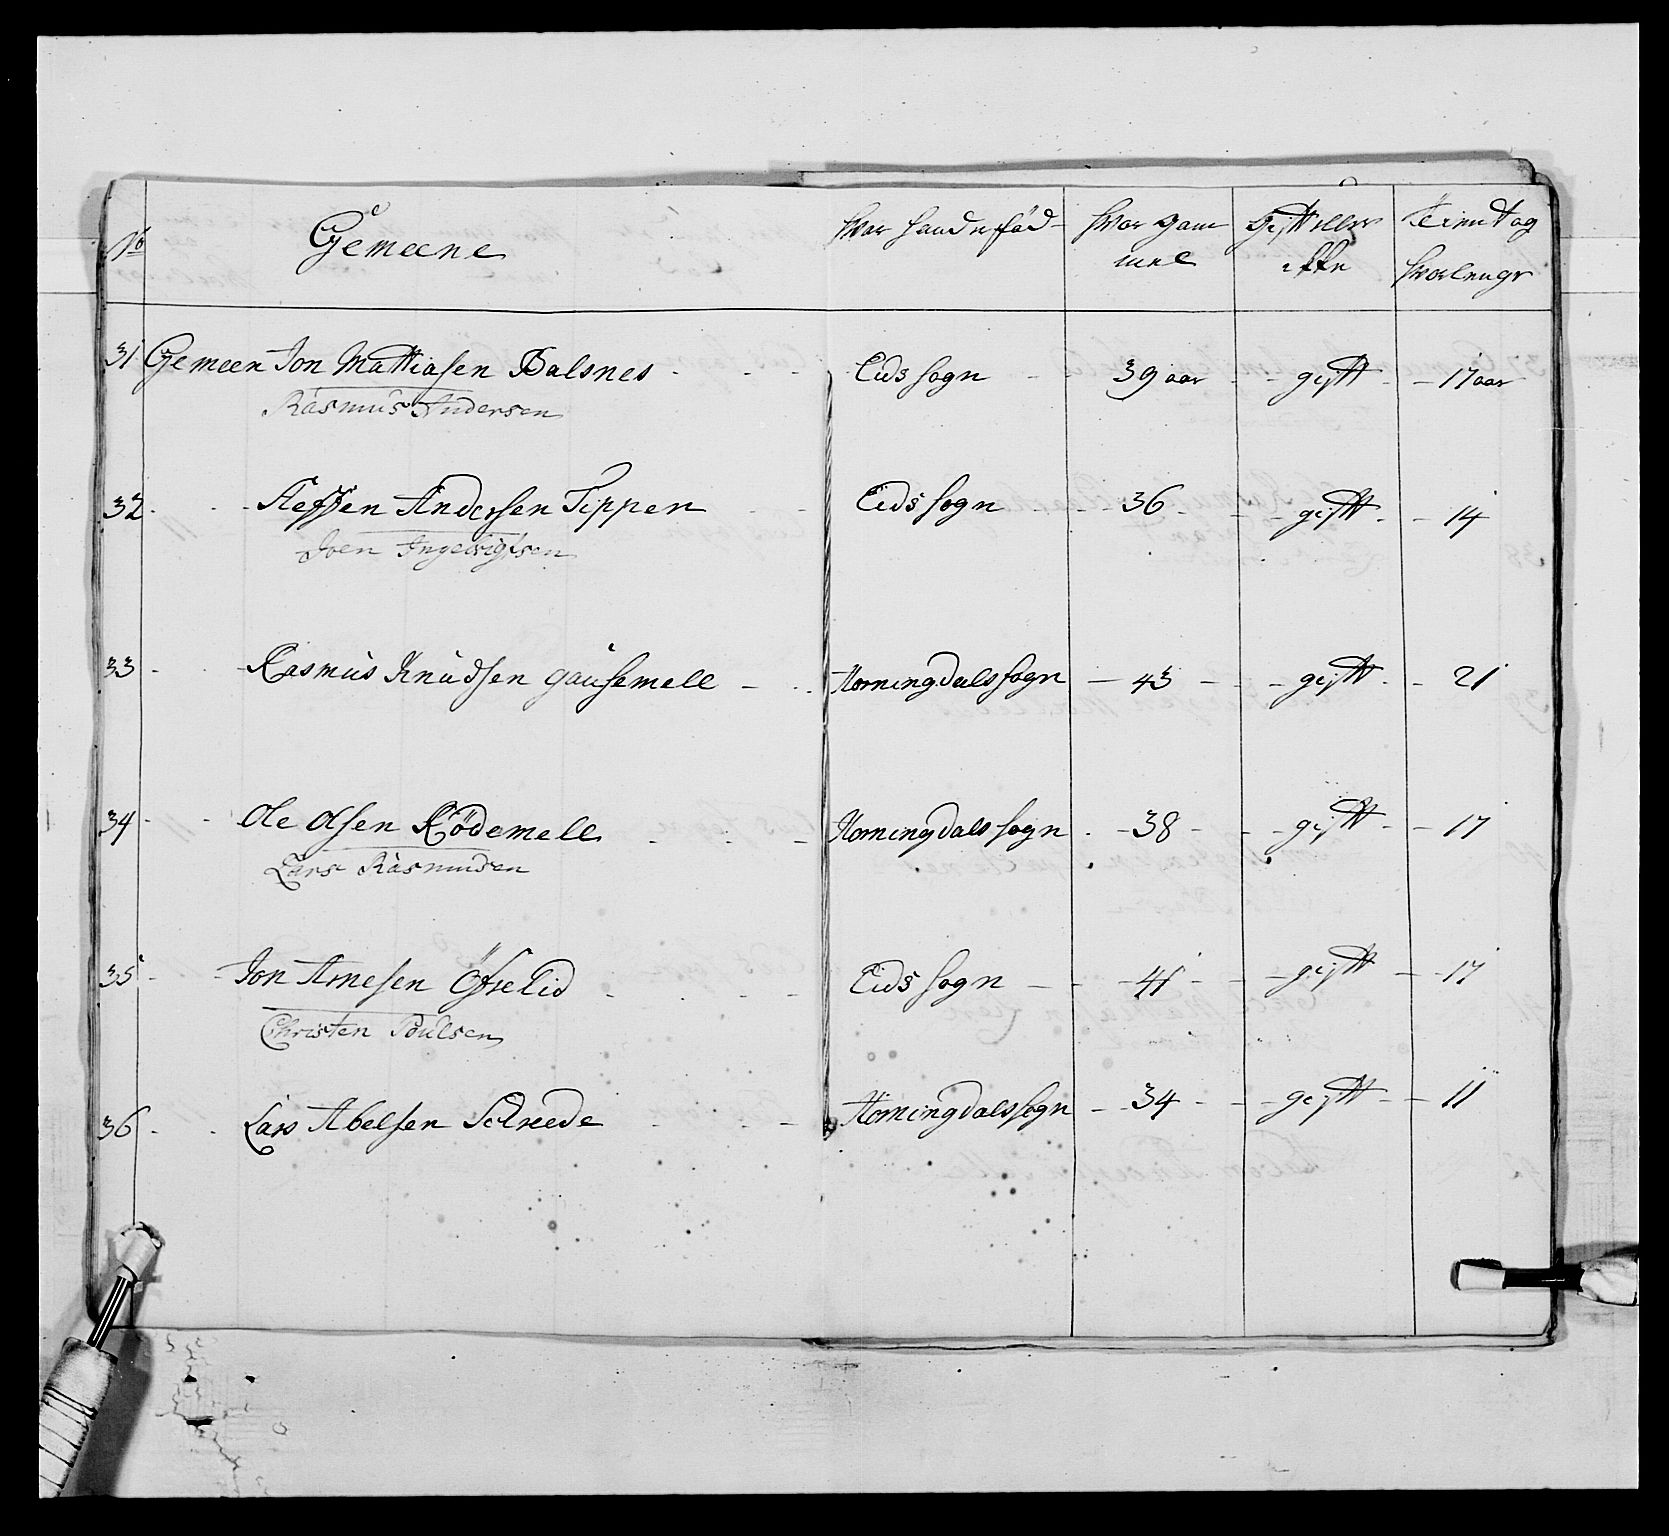 No Gemeene Hvor hand er fød Hvor gam Gift eller Tient og
mel ikke hvor lenge
31 Gemeen Jon Mattiasen Balsnes Eids sogn 39 aar gift 17 aar
Rasmus Andersen
32 Steffen Andersen Tippen Eids sogn 36 gift 14
Joen Ingebrigtsen
33 Rasmus Knudsen gausemell Horningdals sogn 43 gift 21
34 Ole Olsen Rödemell Horningdals sogn 38 gift 17
Lars Rasmusen
35 Jon Arnesen Öfrelid Eids sogn 41 gift 17
Christen Poulsen
36 Lars Abelsen Sclreede Horningdals sogn 34 gift 11